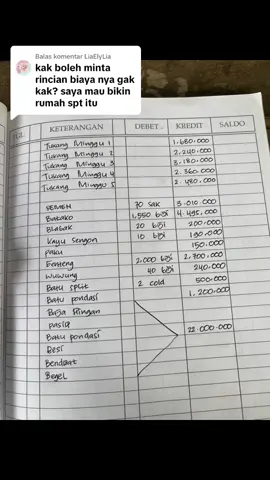 Balas komentar LiaElyLia
kak boleh minta
rincian biaya nya gak
kak? saya mau bikin
rumah spt itu
TGL. KETERANGAN DEBET KREDIT SALDO
Tukang Minggu 1 1.680.000
Tukang Minggu 2 2.240.000
Tukang Minggu 3 3.180.000
Tukang Minggu 4 2.360.000
Tukang Minggu 5 2.480.000
SEMEN 70 sak 3.010.000
Batako 1.550 biji 4.495.000
Blabak 20 biji 200.000
Kayu Sengon 10 biji 190.000
Paku 150.000
Genteng 2.000 biji 2.700.000
Wuwung 40 biji 240.000
Batu split 2 cold 500.000
Batu pondasi 1.200.000
Baja Ringan
Pasir
Batu pondasi 22.000.000
Besi
Bendrat
Begel